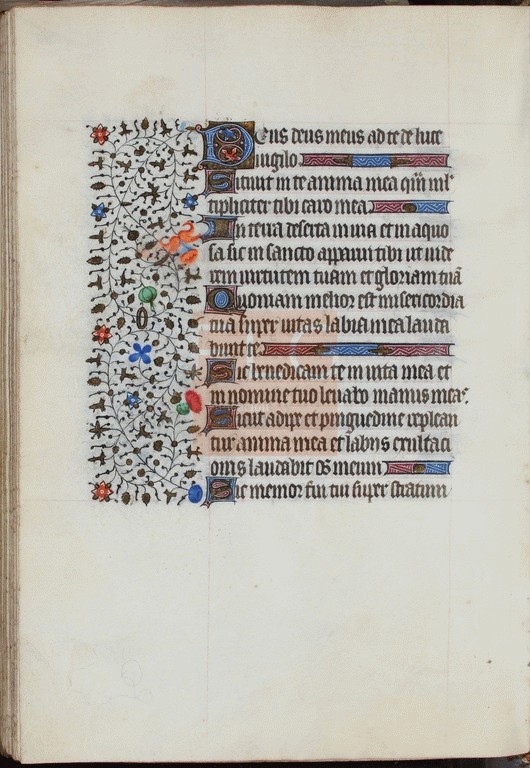 Deus deus meus ad te de luce
vigilo
Sitiuit in te anima mea qm̄ ml̓
tipliciter tibi caro mea
In terra deserta in uia et in aquo
sa sic in sancto apparui tibi ut uide
rem uirtutem tuam et gloriam tuā
Quoniam melior est misericordia
tua super uitas labia mea lauda
bunt te
Sic benedicam te in uita mea et
in nomine tuo leuabo manus meas
Sicut adipe et pinguedine replea
tur anima mea et labijs exultaci
onis laudabit os meum
Sic memor fui tui super stratum